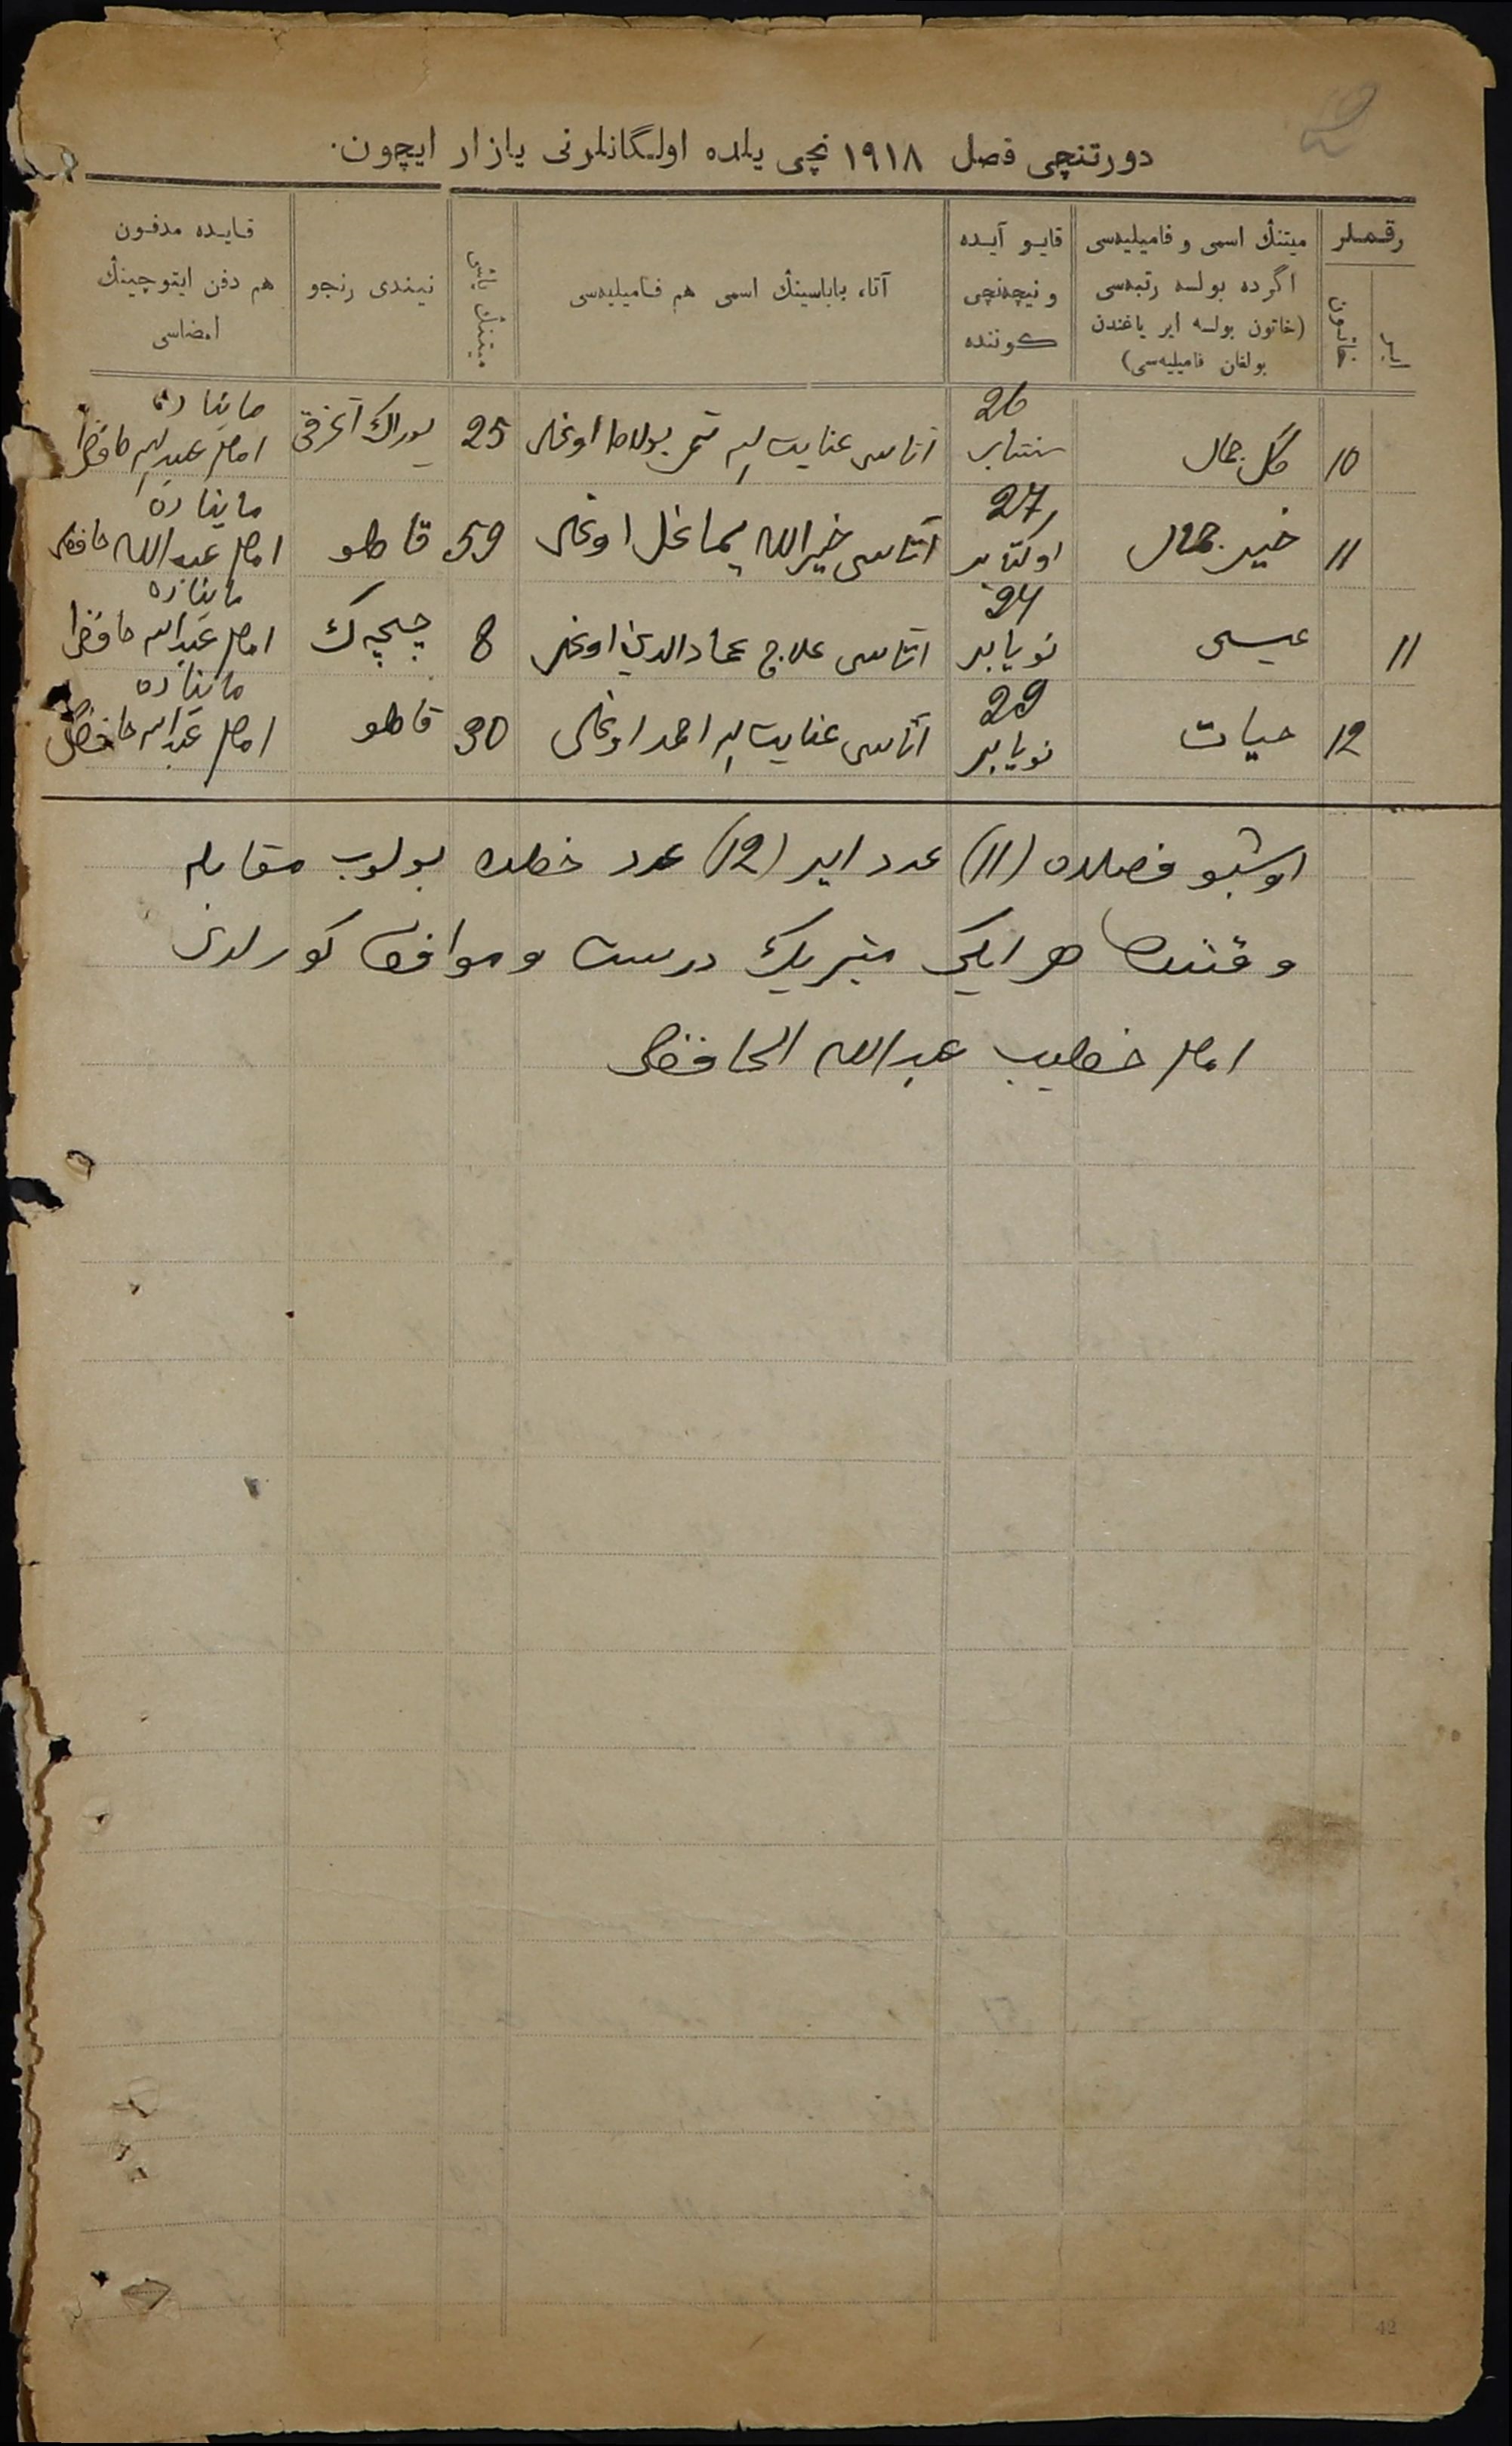 دورتنچی فصل ۱۹۱۸ نچی یلده اولگانلرنی یازار ایچون.
رقملر
ایر
خاتون
میتنڭ اسمی و فامیلیه‌سی
اگرده بولسه رتبه‌سی
(خاتون بولسه ایر یاغندن
بولغان فامیلیه‌سی)
قایو آیده
و نیچه‌نچی
کوننده
آتا، باباسینڭ اسمی هم فامیلیه‌سی
میتنڭ یاشی
نیندی رنجو
قایده مدفون
هم دفن ایتوچینڭ
امضاسی
10 گل جمال 26 سنتابر آتاسی عنایت الله تمر بولاط اوغلی 25 یوراك آغرقی
امام عبدالله حافظی
11 خیر جمال 27 اوکتابر آتاسی خیرالله اوغلی 59 قاطو
امام عبدالله حافظی
11 عیسی 24 نویابر آتاسی علاج عمادالدین اوغلی 8 چیچەك
امام عبدالله حافظی
12 حیات 29 نویابر آتاسی عنایت الله احمد اوغلی 30 قاطو
امام عبدالله حافظی
اوشبو فصلده (11) عدد ایر (12) عدد خطده بولوب مقابله
وقتنده هر ایکی متریك درست و موافق کورلدی
امام خطیب عبدالله الحافظی
42